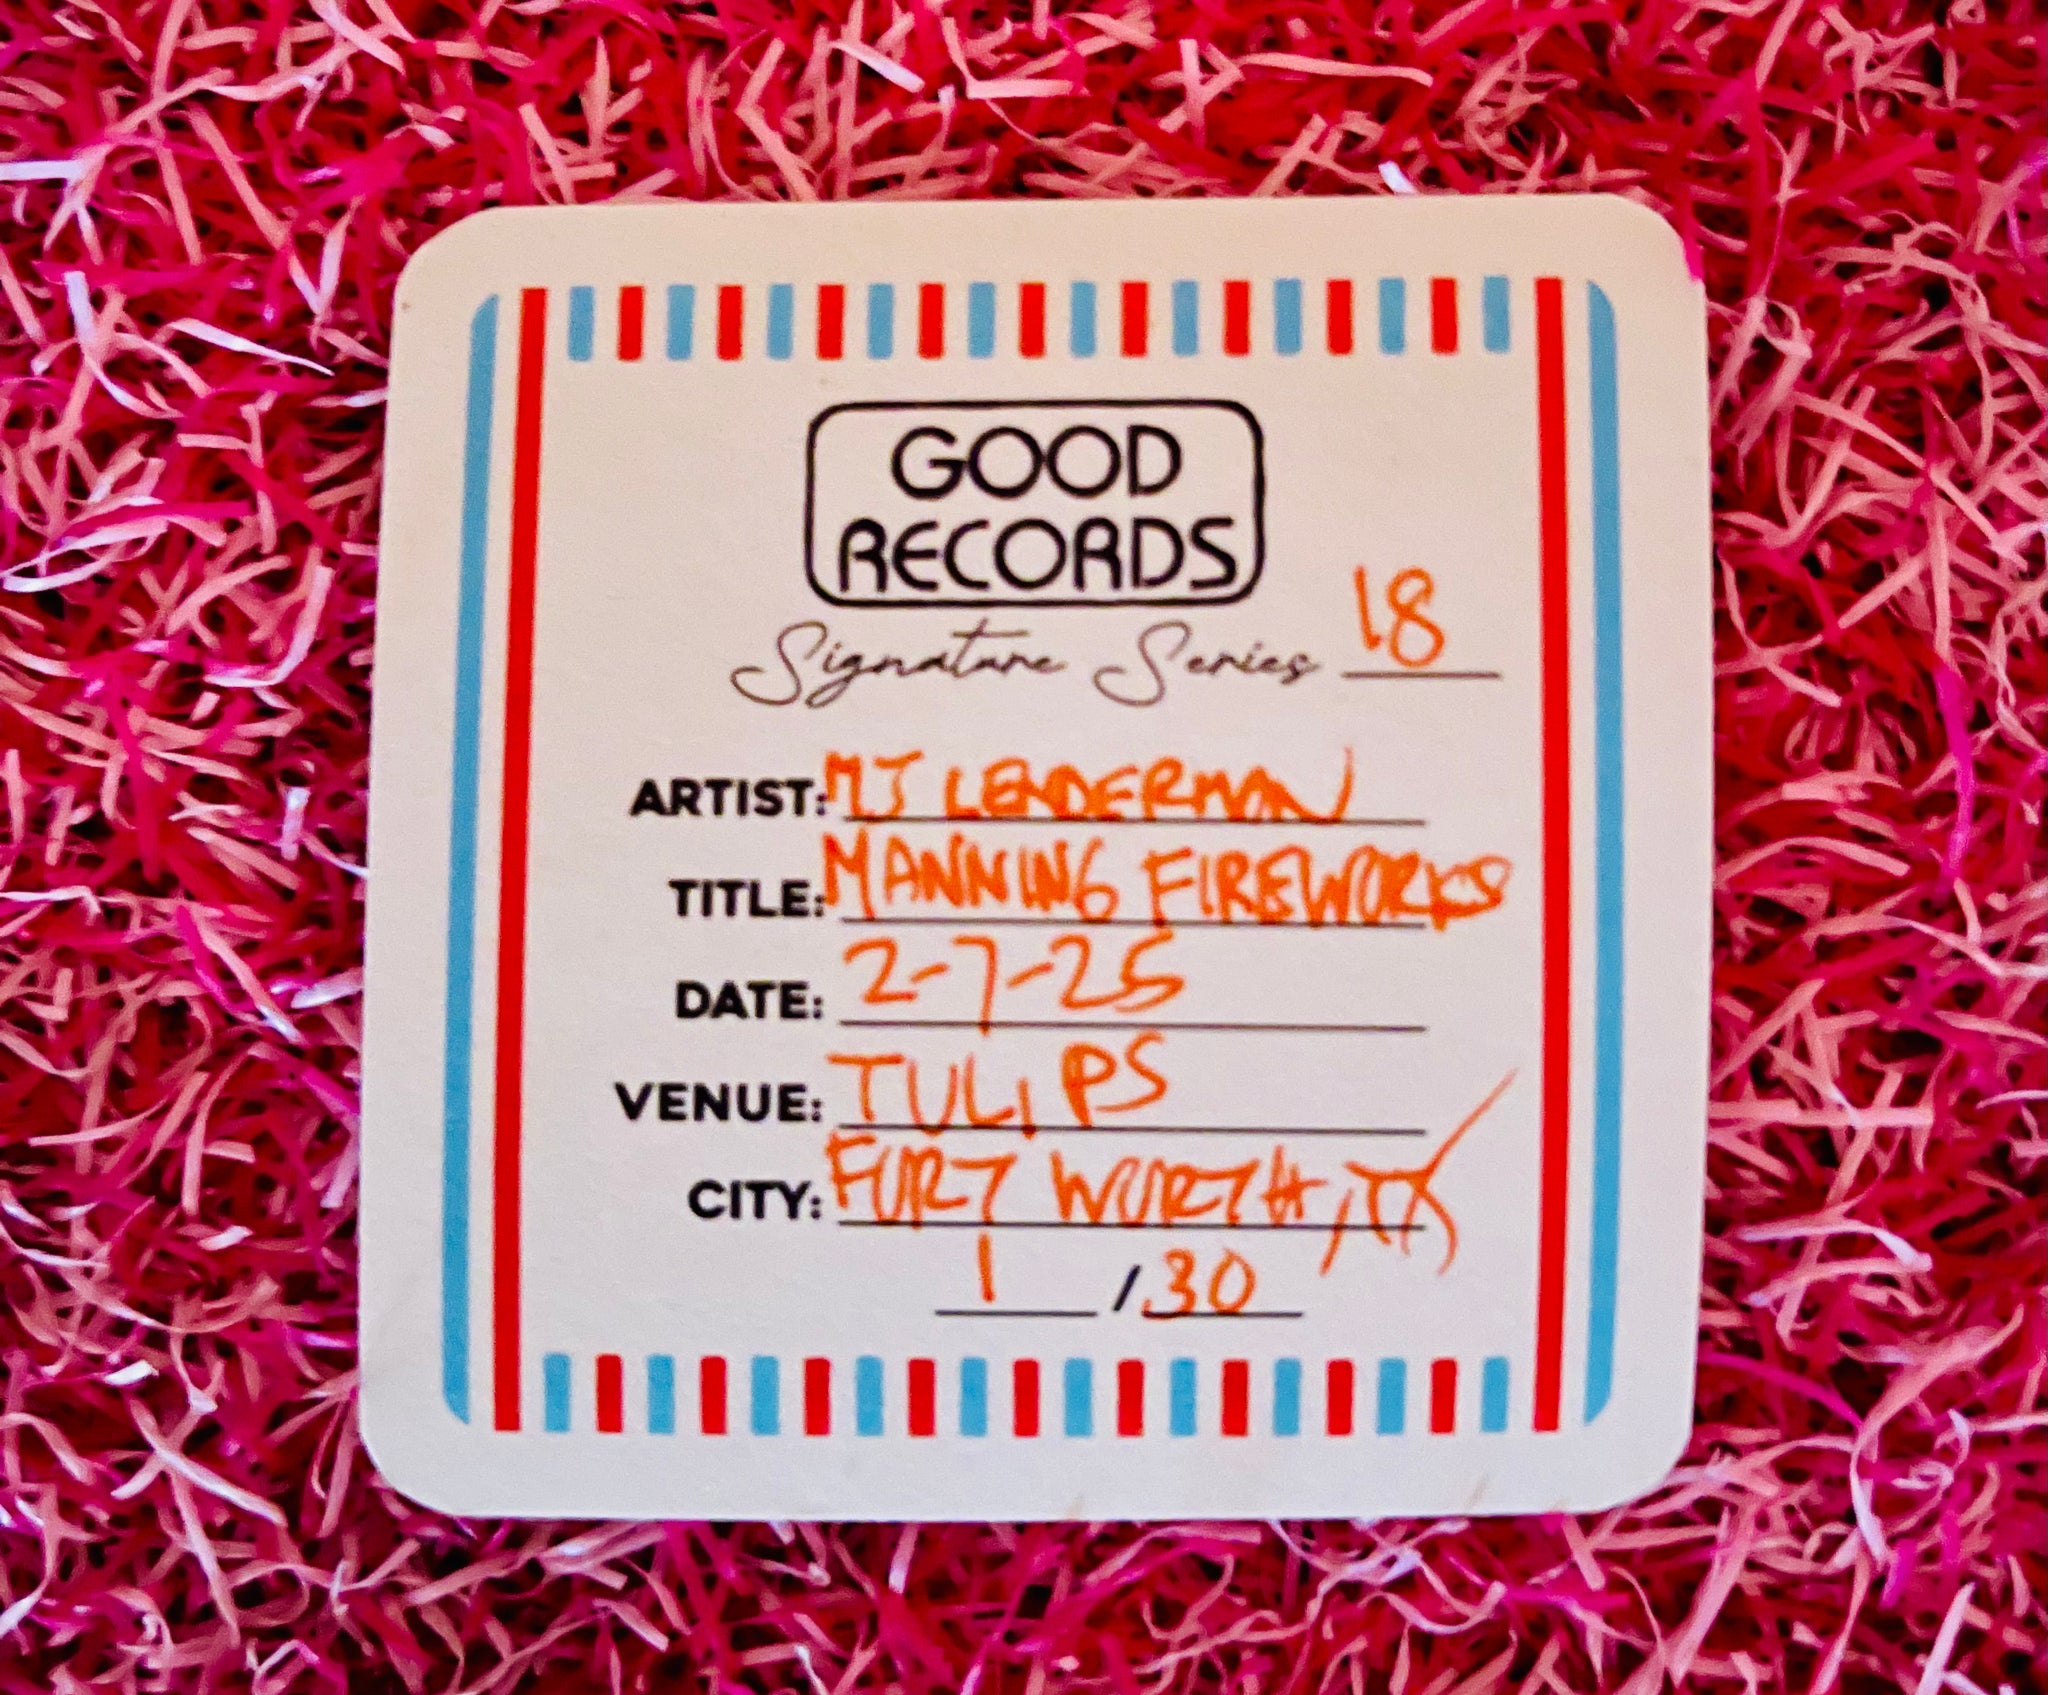 GOOD
RECORDS
Signature Series 18
ARTIST: MJ LENDERMAN
TITLE: MANNING FIREWORKS
DATE: 2-7-25
VENUE: TULIPS
CITY: FORT WORTH, TX
1 / 30